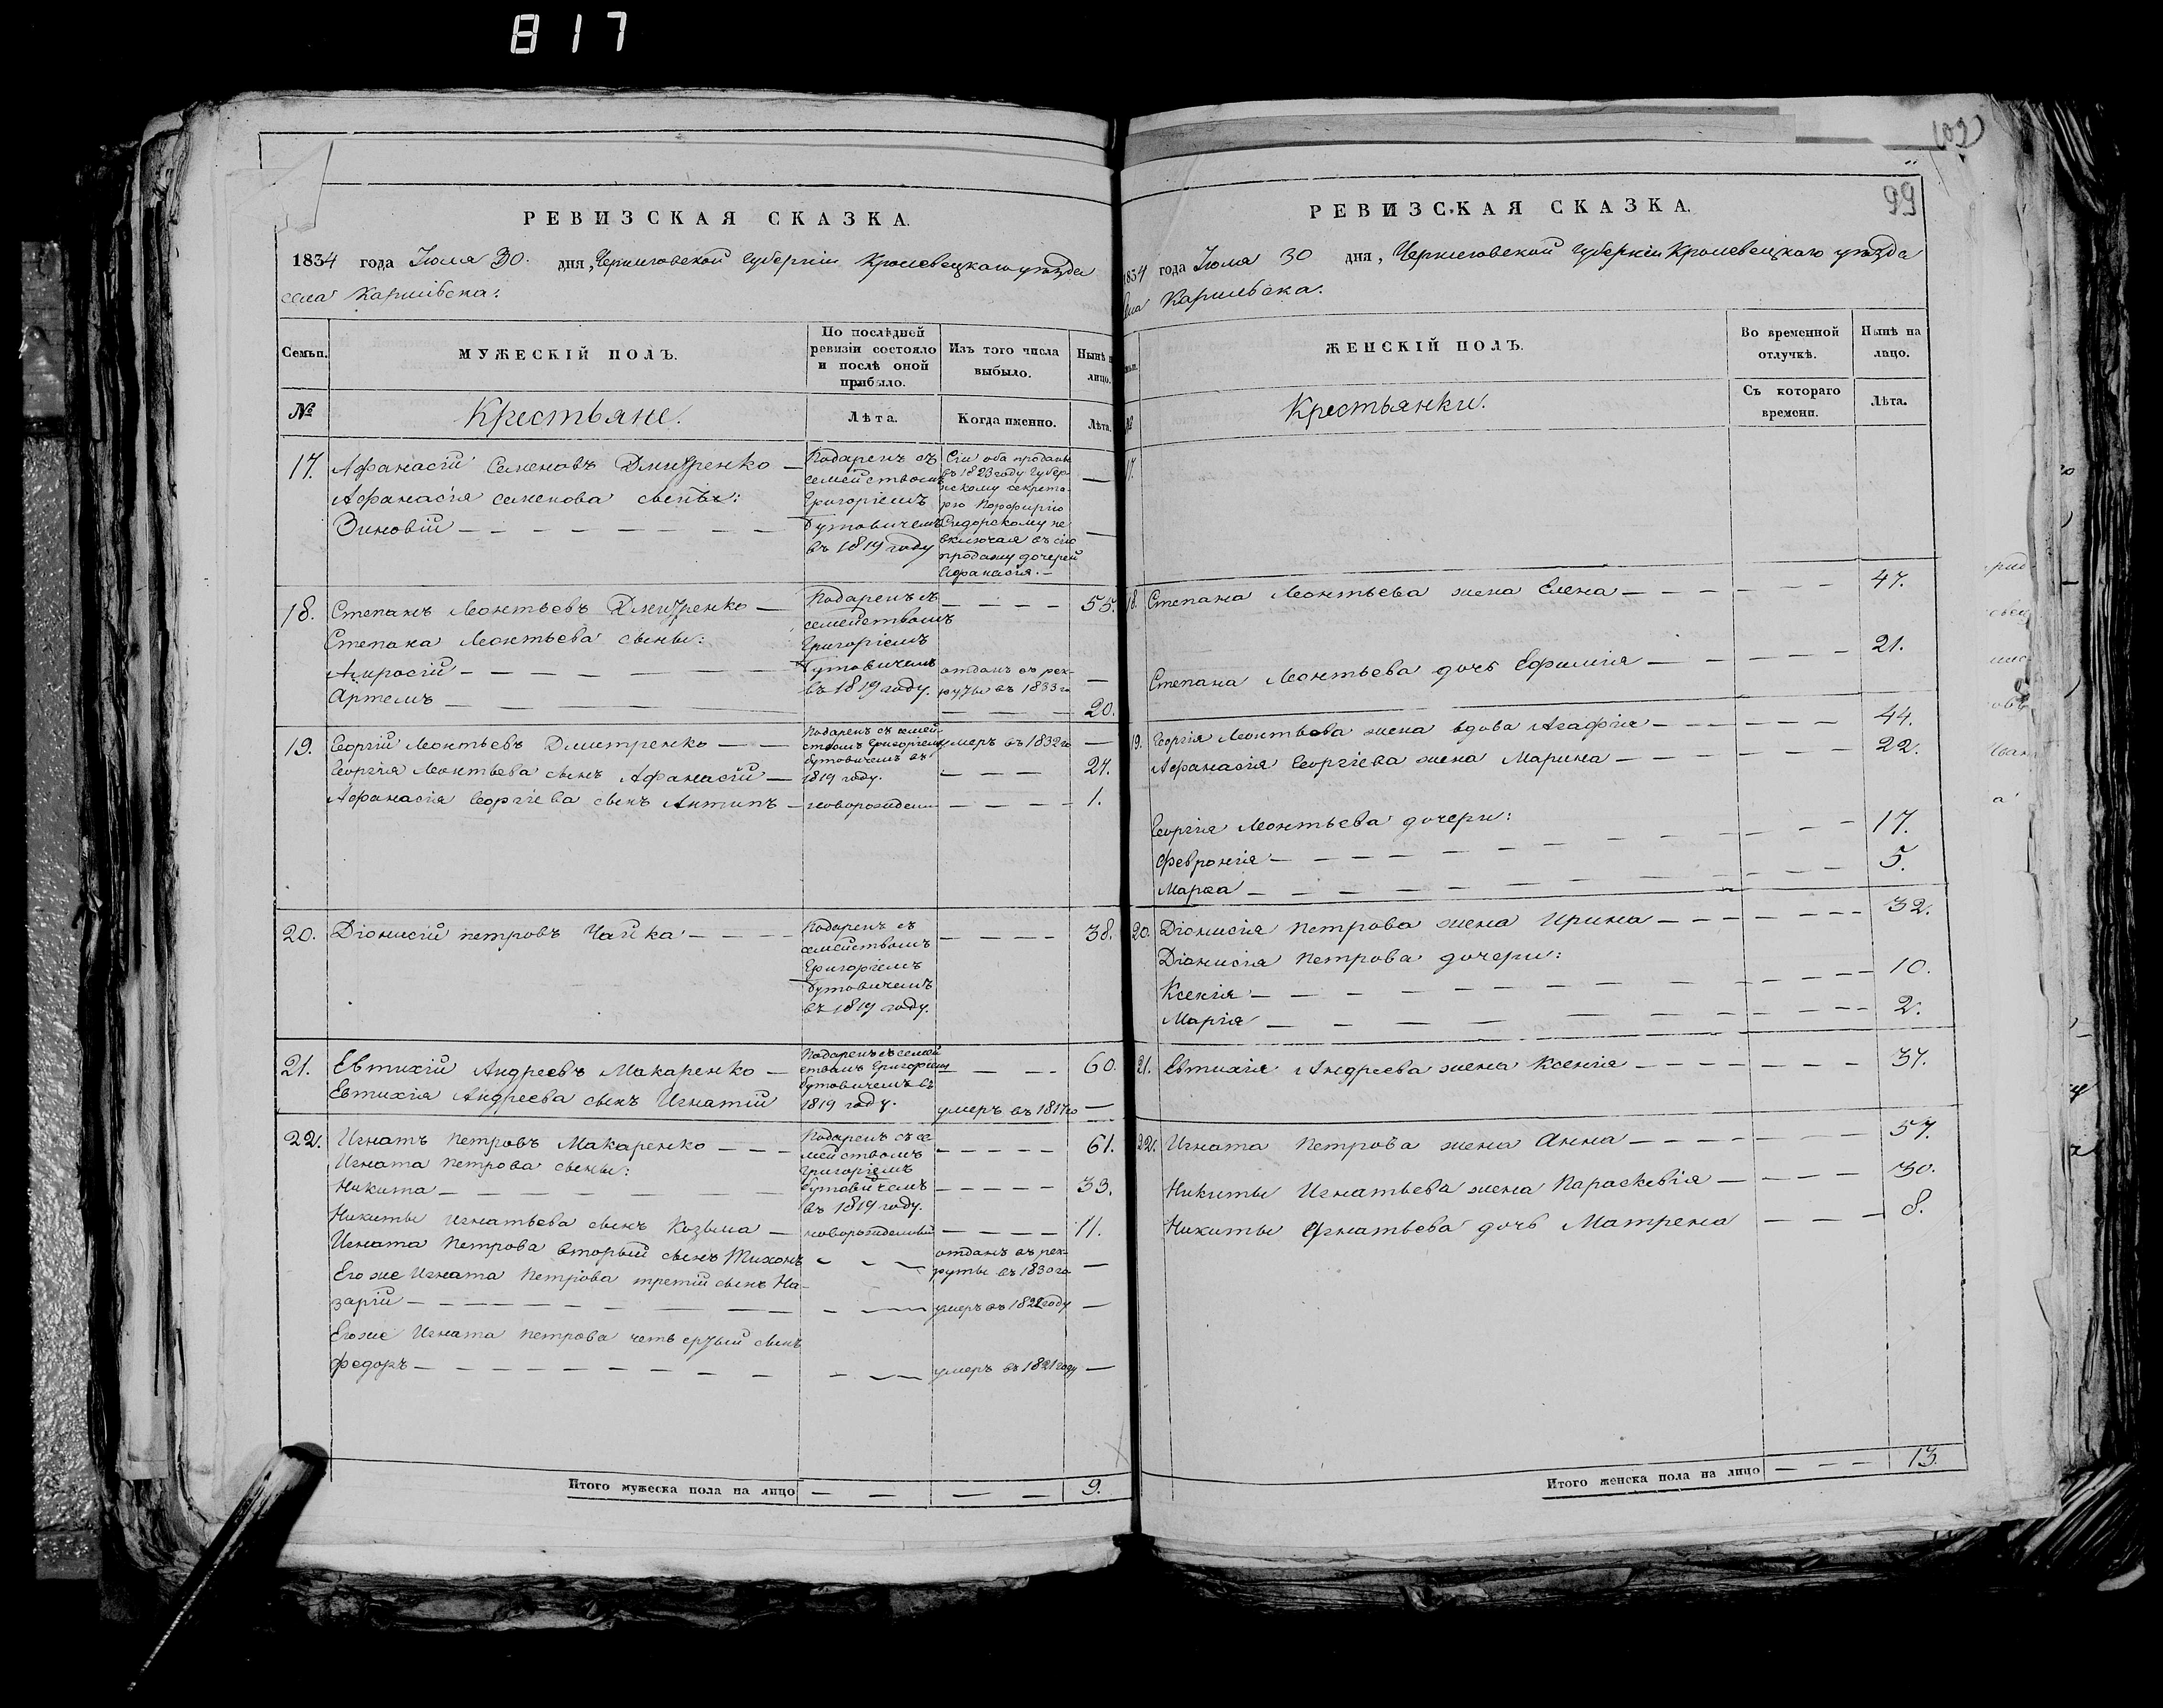 817
РЕВИЗСКАЯ СКАЗКА.
1834 года Іюля 30. дня, Черниговской губерніи Кролевецкаго уѣзда
села Карильска:
Семьи.
МУЖЕСКІЙ ПОЛЪ.
По послѣдней
ревизіи состояло
и послѣ оной
прибыло.
Изъ того числа
выбыло.
Нынѣ
лицо.
№
Крестьяне.
Лѣта.
Когда именно.
Лѣта.
17. Афанасій Семеновъ Дмитренко —
Афанасія семенова сынъ:
Зиновій — — — — — — —
Подаренъ съ
семействомъ
Григоріемъ
Бутовичемъ
въ 1819 году
Сіи оба проданы
въ 1823 году Губер-
нскому секрета-
рю Порфирію
Сидорскому не
включая въ сію
продажу дочерей
Афанасія. —
18. Степанъ Леонтьевъ Дмитренко — 55.
Степана Леонтьева сыны:
Амросій — — — — — —
Артемъ — — — — — — 20.
Подаренъ съ
семействомъ
Григоріемъ
Бутовичемъ
въ 1819 году.
отданъ въ рек-
руты въ 1833 го
19. Георгій Леонтьевъ Дмитренко — — умеръ въ 1832 го —
Георгія Леонтьева сынъ Афанасій — 24.
Афанасія Георгіева сынъ Антипъ — новорожден — — — — 1.
Подаренъ съ семей-
ствомъ Григоріемъ
Бутовичемъ въ
1819 году.
20. Діонисій петровъ Чайка — — — — 38.
Подаренъ съ
семействомъ
Григоріемъ
Бутовичемъ
въ 1819 году.
21. Евтихій Андреевъ Макаренко — 60.
Евтихія Андреева сынъ Игнатій умеръ въ 1817 го —
Подаренъ съ семей
ствомъ Григоріемъ
Бутовичемъ въ
1819 году.
22. Игнатъ Петровъ Макаренко — — — 61.
Игната петрова сыны:
Никита — — — — — — 33.
Подаренъ съ се
мействомъ
Григоріемъ
Бутовичемъ
въ 1819 году.
Никиты Игнатьева сынъ Козьма — новорожденный — — — — 11.
Игната Петрова вторый сынъ Тихонъ
отданъ въ рек-
руты въ 1830 го —
Его же Игната Петрова третій сынъ На-
зарій — — — — — — умеръ въ 1822 году —
Его же Игната петрова четвертый сынъ
федоръ — — — — — — умеръ въ 1821 году —
Итого мужеска пола на лицо — — — — 9.
109
99
РЕВИЗСКАЯ СКАЗКА.
1834 года Іюля 30 дня, Черниговской губерніи Кролевецкаго уѣзда
Карильска.
ЖЕНСКІЙ ПОЛЪ.
Во временной
отлучкѣ.
Нынѣ на
лицо.
Крестьянки.
Съ котораго
времени.
Лѣта.
17.
18. Степана Леонтьева жена Елена — — — — 47.
Степана Леонтьева дочь Ефимія — — — — 21.
19. Георгія Леонтьева жена вдова Агафія — — — — 44.
Афанасія Георгіева жена Марина — — — — 22.
Георгія Леонтьева дочери:
Февронія — — — — — — 17.
Марѳа — — — — — — 5.
20. Діонисія петрова жена Ирина — — — — 32.
Діонисія Петрова дочери:
Ксенія — — — — — — 10.
Марія — — — — — — 2.
21. Евтихія Андреева жена Ксенія — — — — 37.
22. Игната Петрова жена Анна — — — — 57.
Никиты Игнатьева жена Параскевія — — — — 30.
Никиты Игнатьева дочь Матрена — — — 8.
Итого женска пола на лицо — — — 13.